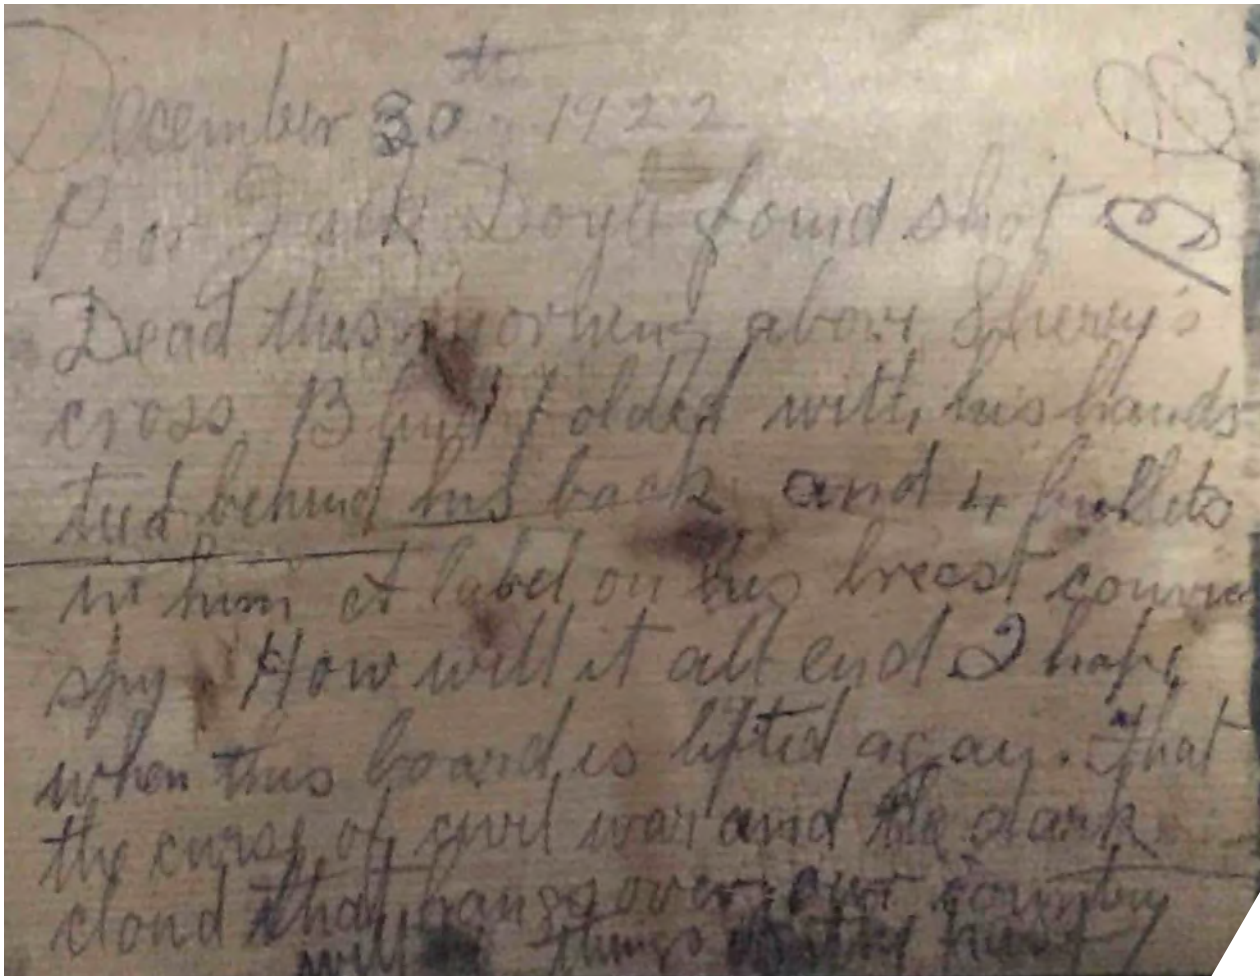 December 30th 1922
Poor Jack Doyle found shot
Dead this morning above Sherry's
cross. Blindfolded with his hands
tied behind his back and 4 bullets
in him a label on his breast
spy How will it all end I hope
when this board is lifted again. that
the curse of civil war and the dark
cloud that hangs over our country
will things